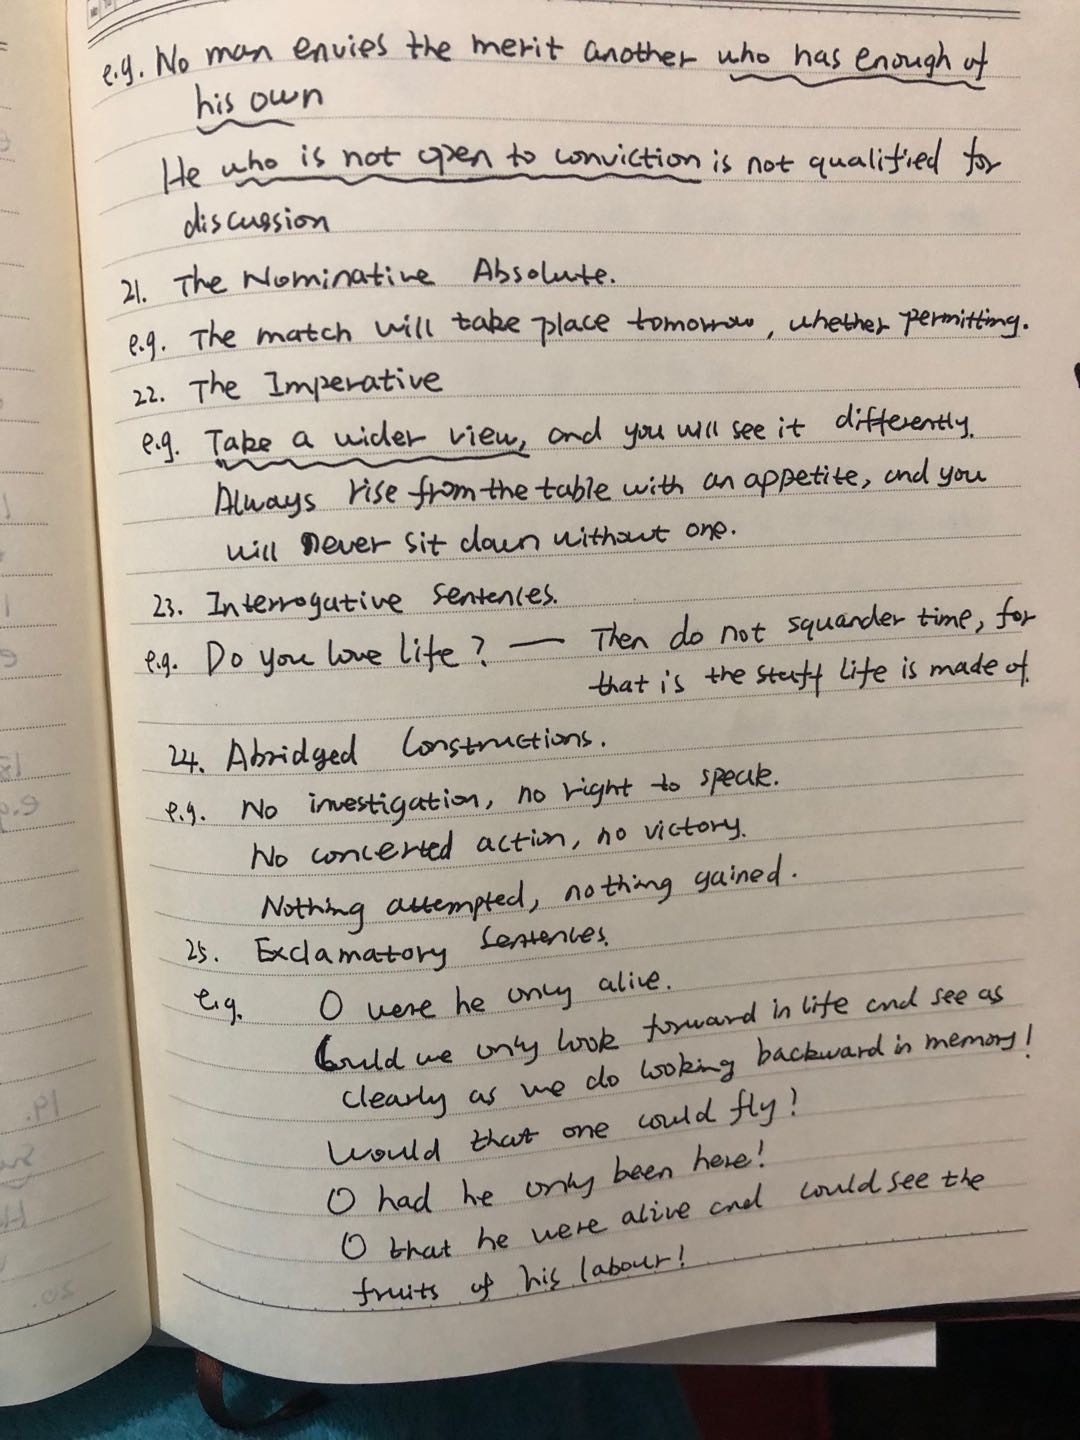 e.g. No man envies the merit another who has enough of
his own
He who is not open to conviction is not qualified for
discussion
21. The Nominative Absolute.
e.g. The match will take place tomorrow, whether permitting.
22. The Imperative
e.g. Take a wider view, and you will see it differently.
Always rise from the table with an appetite, and you
will never sit down without one.
23. Interrogative Sentences.
e.g. Do you love life? — Then do not squander time, for
that is the stuff life is made of.
24. Abridged Constructions.
e.g. No investigation, no right to speak.
No concerted action, no victory.
Nothing attempted, nothing gained.
25. Exclamatory Sentences.
e.g. O were he only alive.
Could we only look forward in life and see as
clearly as we do looking backward in memory!
Would that one could fly!
O had he only been here!
O that he were alive and could see the
fruits of his labour!